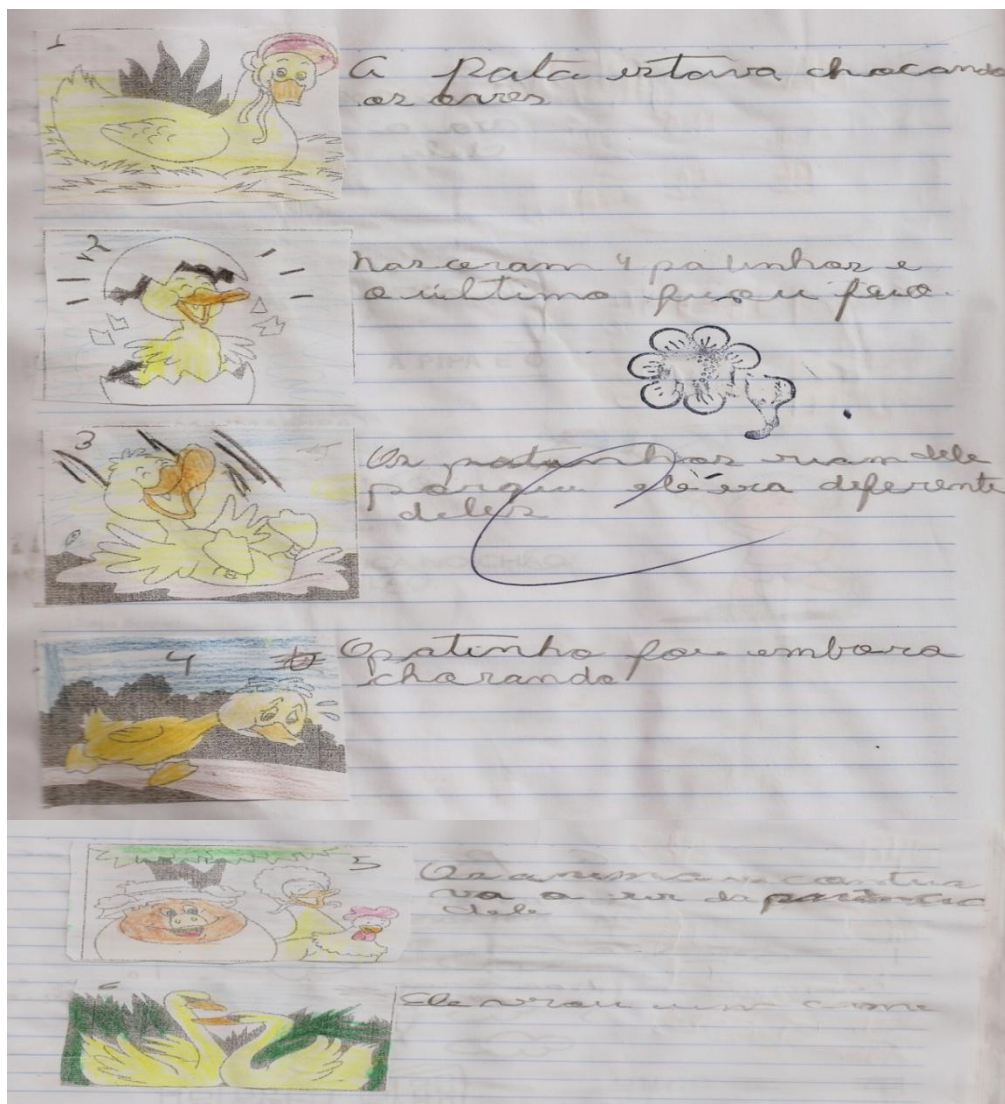 1
A Pata estava chocando
os ovos
2
Nasceram 4 patinhos e
o último ficou feio
3
Os patinhos riam dele
porque ele era diferente
deles
4
O patinho foi embora
chorando
5
Os animais
va a rir da
dele
Ele virou um cisne